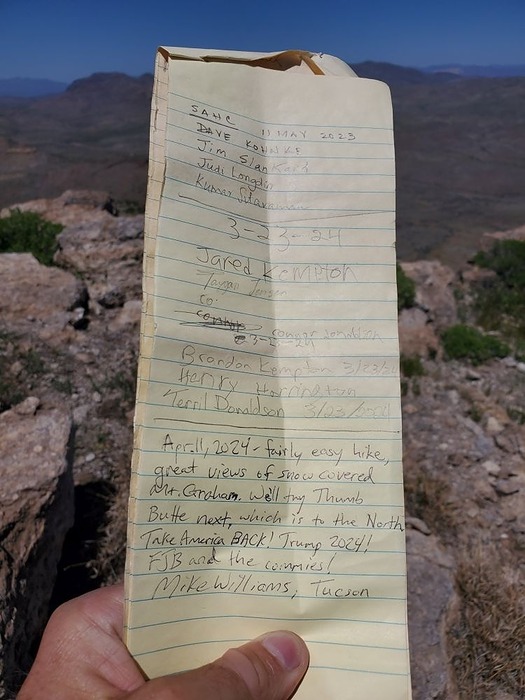 SAHC
11 MAY 2023
DAVE KOHNKE
Jim Slankard
Judi Longdin
Kumar
3-23-24
Jared Kempton
CO.
Connor Donaldson
3-23-24
Brandon Kempton 3/23/24
Henry Harrington
Terril Donaldson 3/23/2024
Apr. 11, 2024 - fairly easy hike,
great views of snow covered
Mt. Graham. We'll try Thumb
Butte next, which is to the North
Take America BACK! Trump 2024!
FJB and the commies!
Mike Williams, Tucson